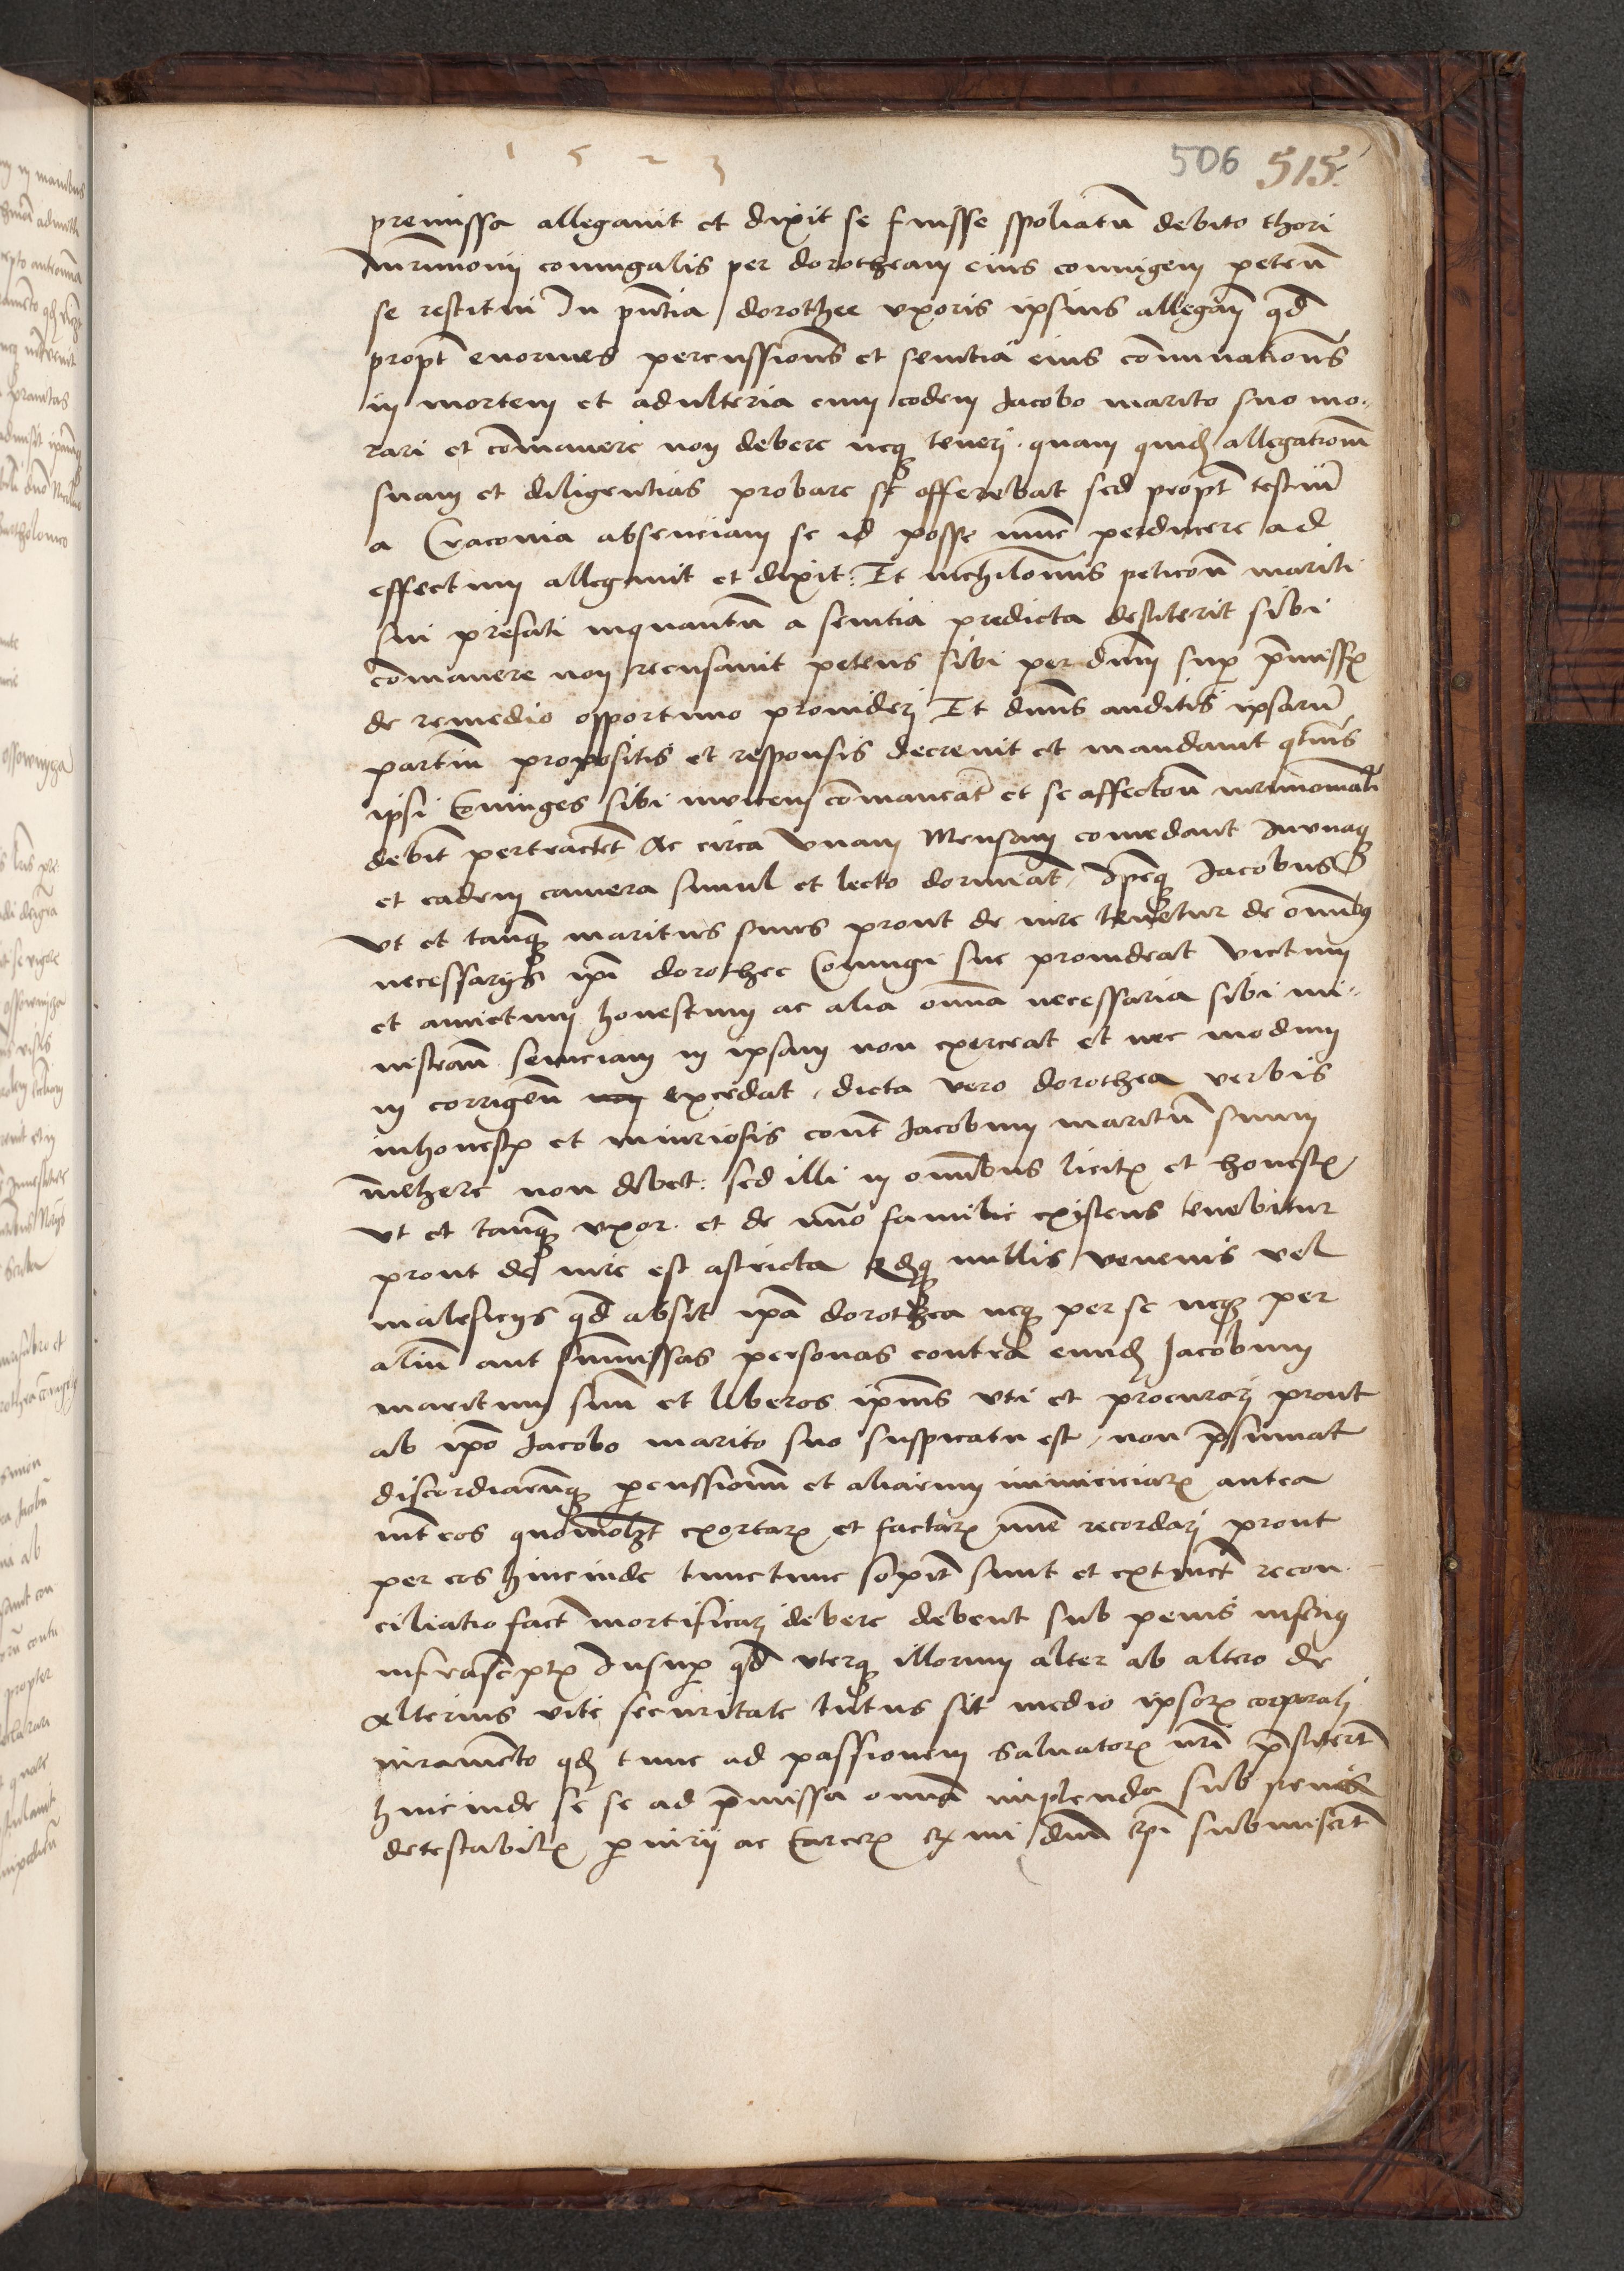 1 5 2 3
506 515
premissa allegavit et dixit se fuisse spoliatū debito thori
mr̄imonij coniugalis per dorotheam eius coniugem petens
se restitui In pn̄tia dorothee vxoris ipsius allegan̄ qd̄
propt̄ enormes percussiones et sevitiā eius cōminationes
in mortem et adulteria cum eodem Jacobo marito suo mo-
rari et cōmanere non debere neq̄ teneri. quam quid̄ allegationem
suam et diligentias probare se offerebat sed propt̄ testiū
a Cracovia absenciam se id posse nunc perducere ad
effectum allegavit et dixit: Et nichilomīns peticōn mariti
sui prefati inquantū a sevitia predicta destiterit sibi
cōmanere non recusavit petens sibi per dnm̄ sup̄ p̄missꝭ
de remedio opportuno provideri Et dnūs auditis ipsarū
partiū propositis et responsis decrevit et mandavit qt̄ns
ipsi Coniuges sibi invicem cōmaneāt et se affectōn mr̄imonialī
debit̄ pertractēt Ac circa vnam Mensam comedant Jnvnaq̄
et eadem camera simul et lecto dormiāt, Ip̄eq̄ Jacobus
vt et tanq̄ maritus suus prout de iure tenetur de omībꝯ
necessarijs ip̄i dorothee Coniugi sue provideat victum
et amictum honestum ac alia om̄ia necessaria sibi mi-
nistran̄ seviciam in ipsam non exerceat et nec modum
in corrigen̄ non excedat, dicta vero dorothea verbis
inhonestꝭ et iniuriosis cont̄ Jacobum maritū suum
invehere non debet: sed illi in om̄ibus licitꝭ et honestꝭ
vt et tanq̄ vxor. et de vno familie existens tenebitur
prout de iure est astricta Qd̄q̄ nullis venenis vel
maleficijs qd̄ absit ip̄a dorothea neq̄ per se neq̄ per
aliū aut sum̄issas personas contra eund̄ Jacobum
maritum suū et liberos ip̄ius vti et procurari prout
ab ip̄o Jacobo marito suo suspicatū est, non p̄sumat
discordiarumq̄ p̄cussionū et aliarum inimiciciarꝭ antea
int̄ eos quomōlꝫt exortarꝭ et factarꝭ nunc recordari prout
per eos hincinde tunctunc sopit̄ sunt et extinct̄ recon-
ciliatio fact̄ mortificari debere debent sub penis
infrascptꝭ Insup̄ qd̄ vterq̄ illorum alter ab altero de
alterius vite securitate tutus sit medio ipsorꝭ corporali
iuramēto qd̄ tunc ad passionem Salvatorꝭ nr̄i p̄stiterūt
hincinde se se ad p̄missa om̄ia implenda sub penis
detestabilꝭ p̄iurij ac Carcerꝭ submiserūt